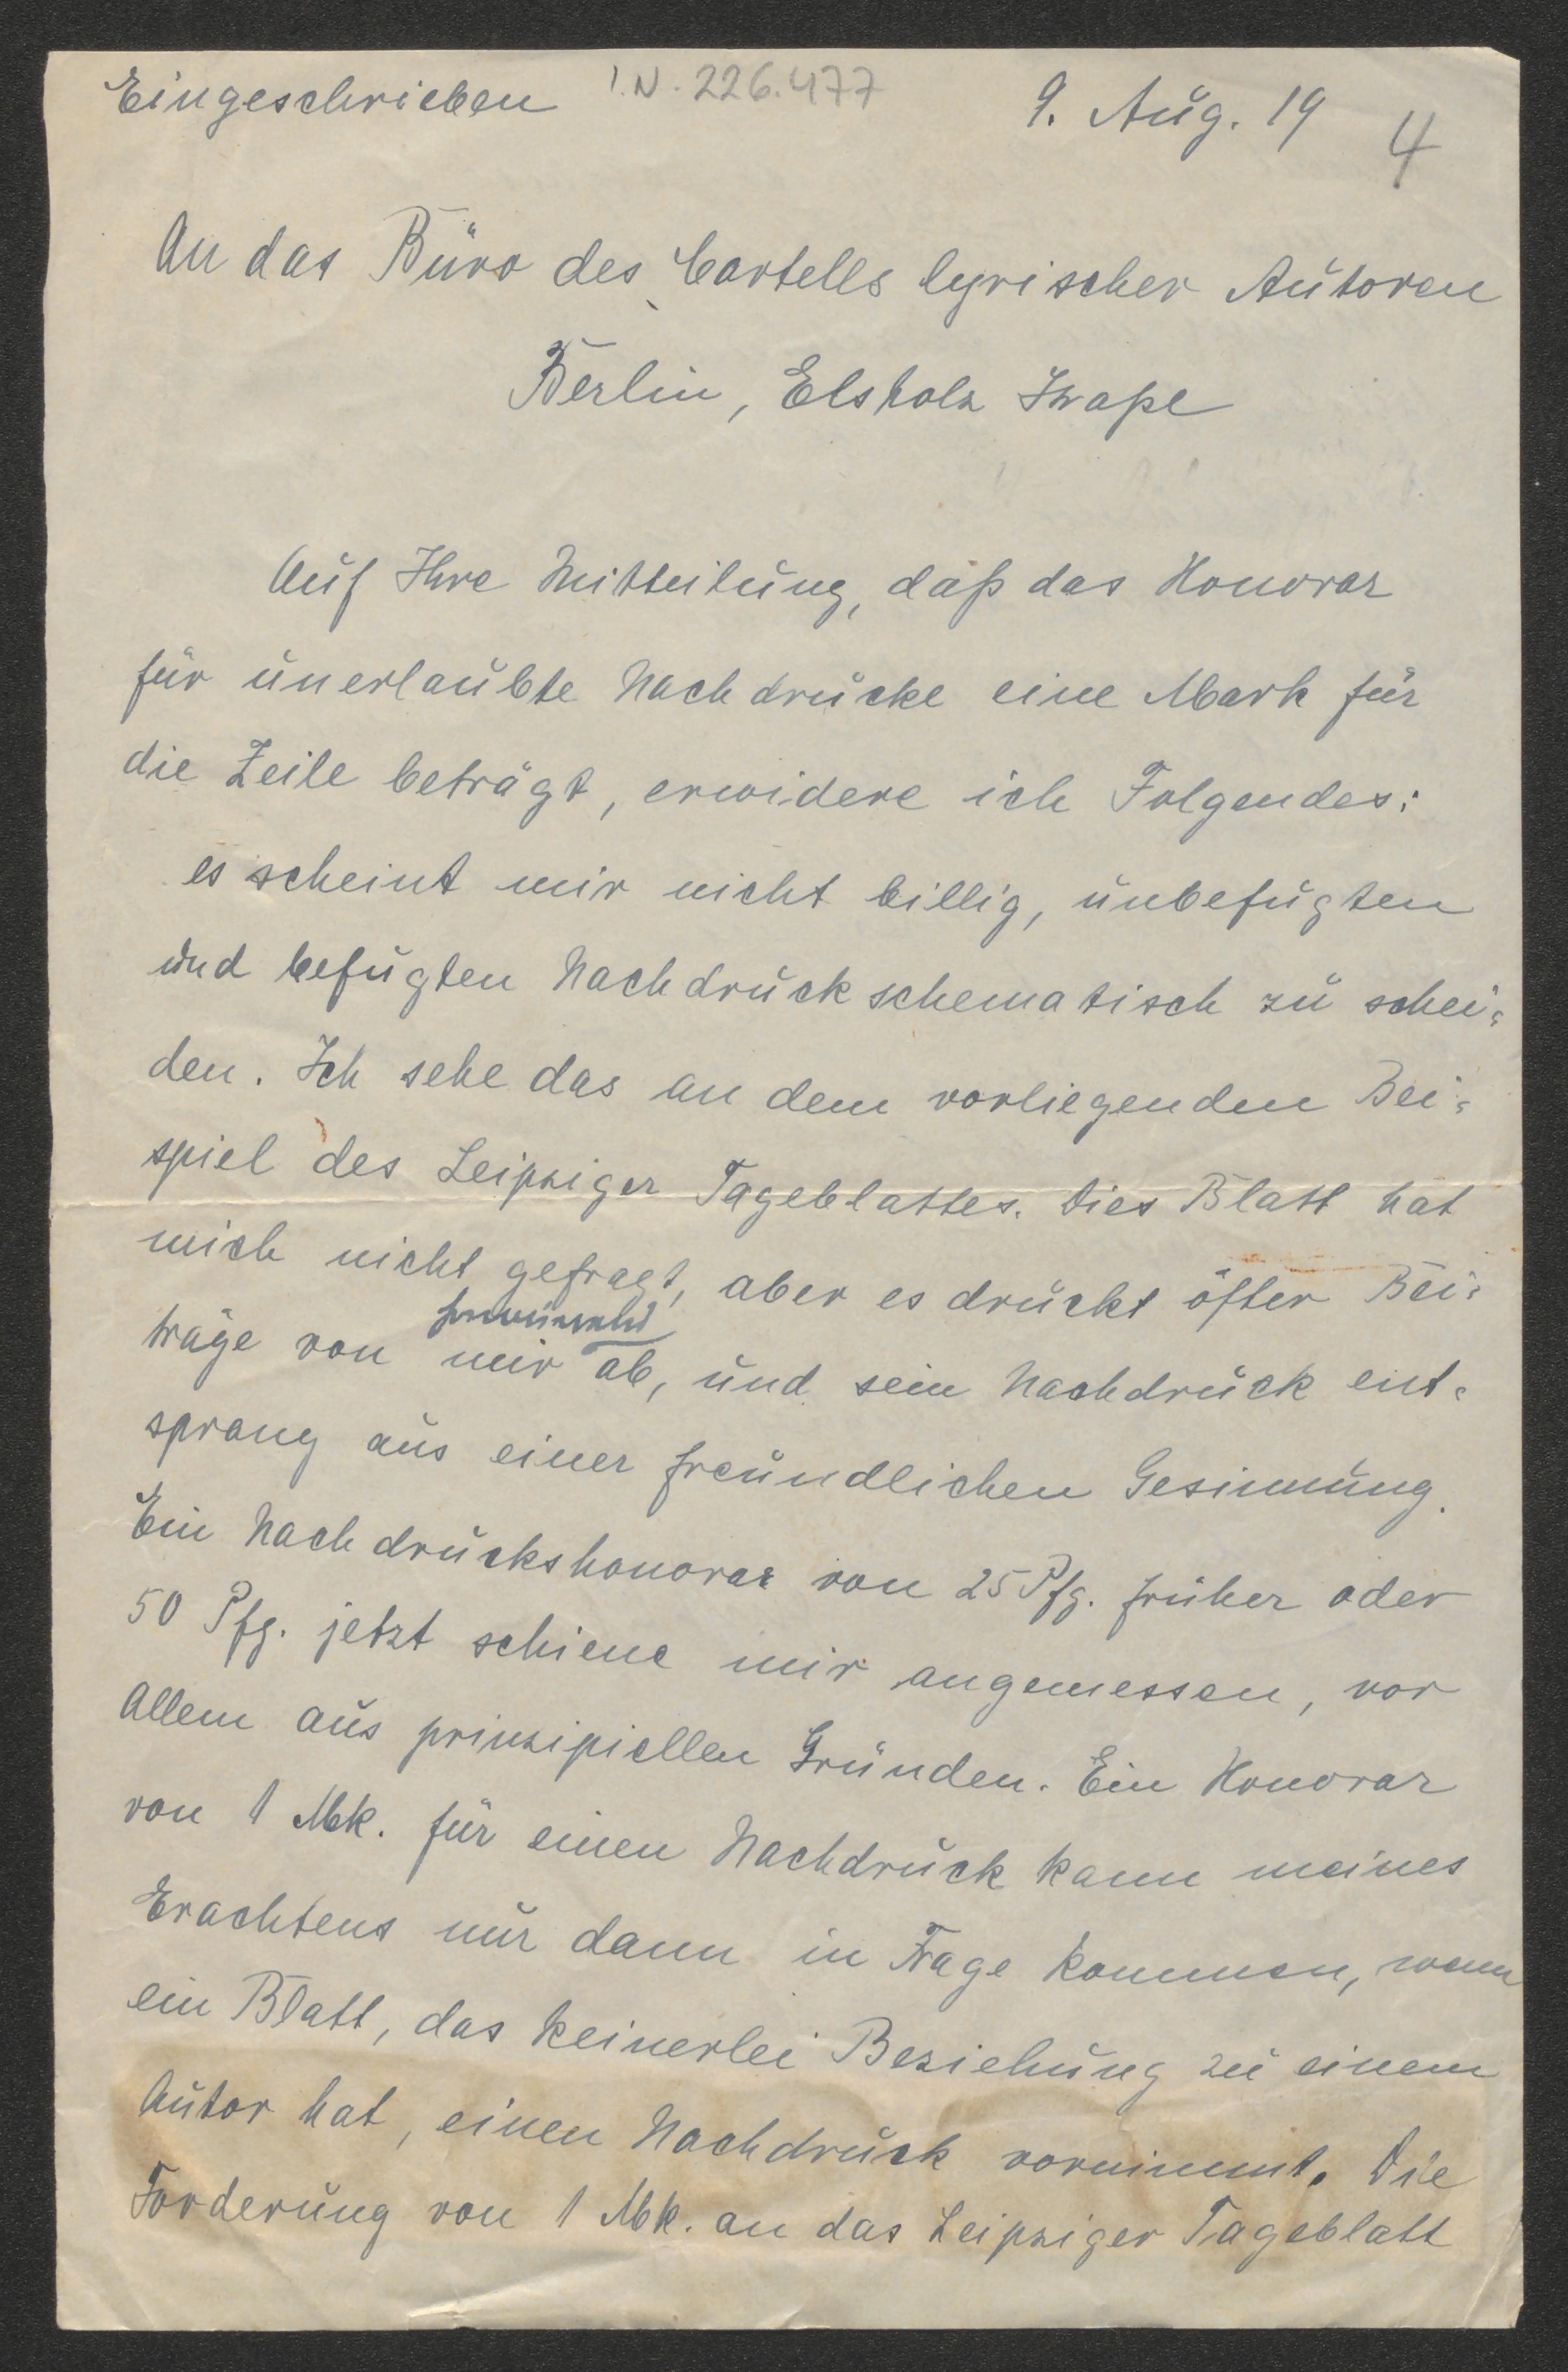 Eingeschrieben I.N. 226.477 9. Aug. 19 4
An das Büro des Cartells lyrischer Autoren
Berlin, Elsholz Straße
Auf Ihre Mitteilung, daß das Honorar
für unerlaubte Nachdrucke eine Mark für
die Zeile beträgt, erwidere ich Folgendes:
es scheint mir nicht billig, unbefugten
und befugten Nachdruck schematisch zu schei=
den. Ich sehe das an dem vorliegenden Bei=
spiel des Leipziger Tageblattes. Dies Blatt hat
mich nicht gefragt, aber es druckt öfter Bei=
träge von mir ab, und sein Nachdruck ent=
sprang aus einer freundlichen Gesinnung.
Ein Nachdruckshonorar von 25 Pfg. früher oder
50 Pfg. jetzt schiene mir angemessen, vor
Allem aus prinzipiellen Gründen. Ein Honorar
von 1 Mk. für einen Nachdruck kann meines
Erachtens nur dann in Frage kommen, wenn
ein Blatt, das keinerlei Beziehung zu einem
Autor hat, einen Nachdruck vornimmt. Die
Forderung von 1 Mk. an das Leipziger Tageblatt